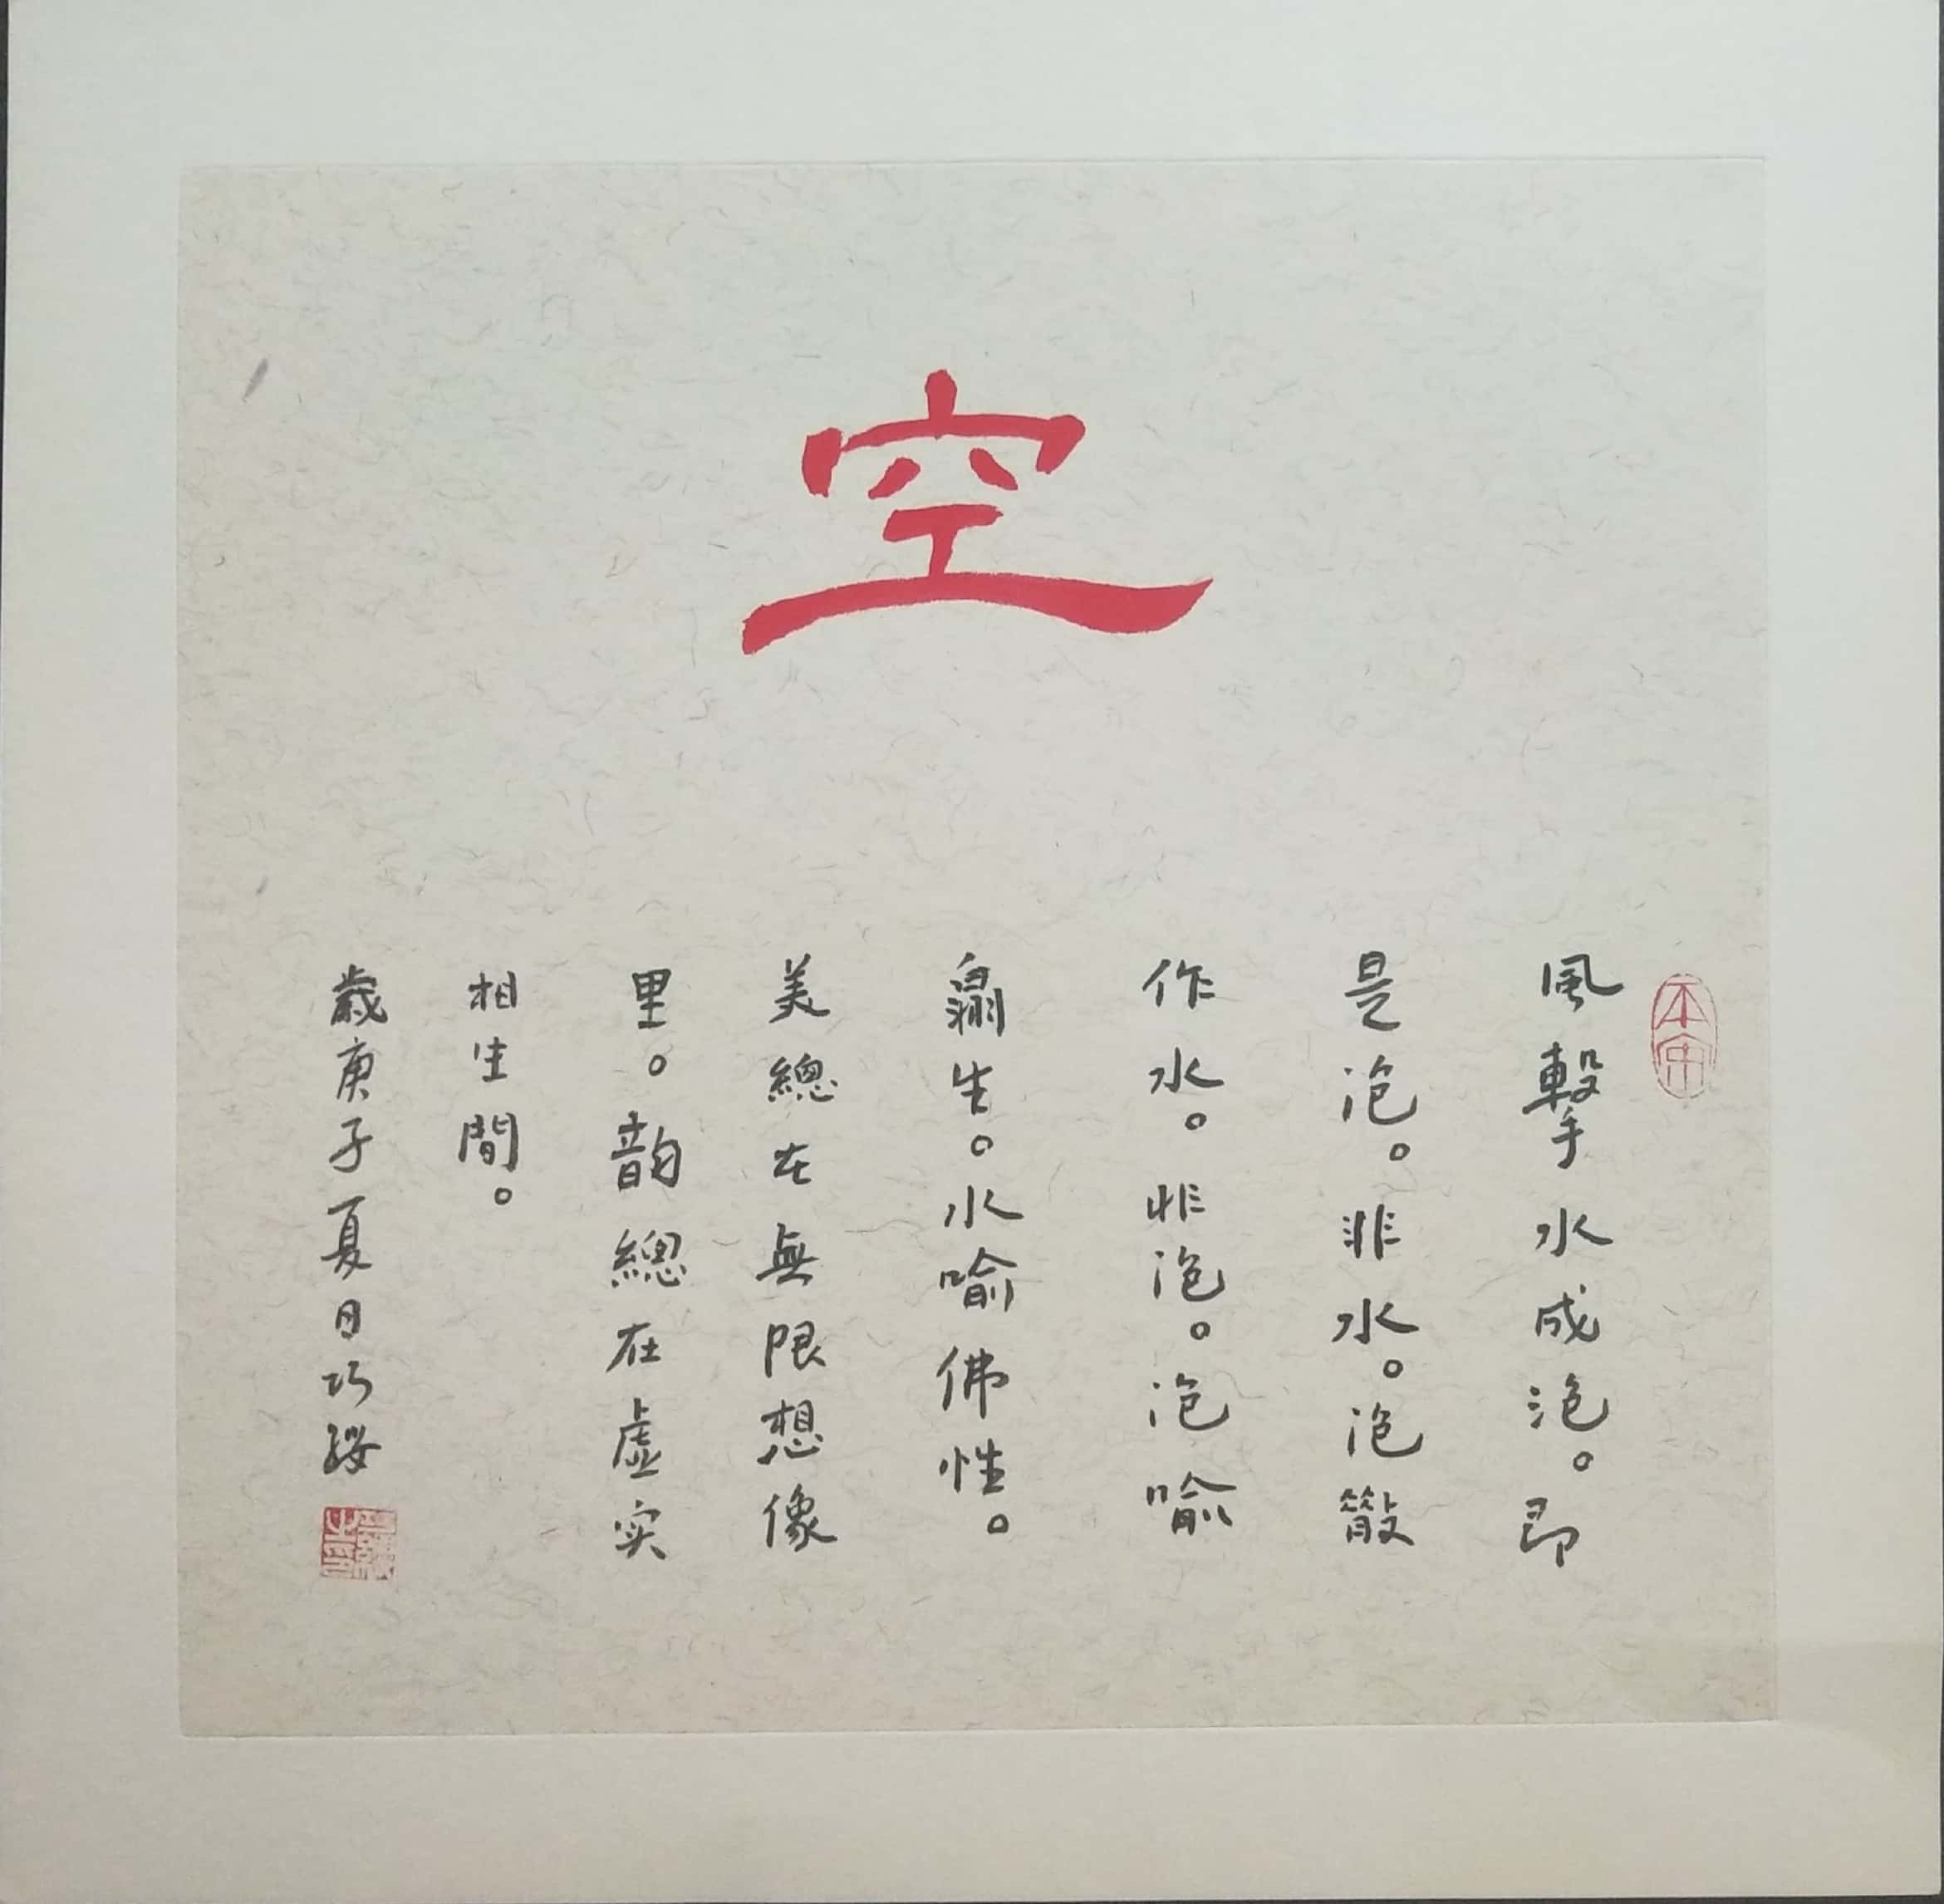 空
風擊水成泡。即
是泡。非水。泡散
作水。非泡。泡喻
生。水喻佛性。
美總在無限想像
里。韵總在虚实
相生間。
歲庚子夏日巧